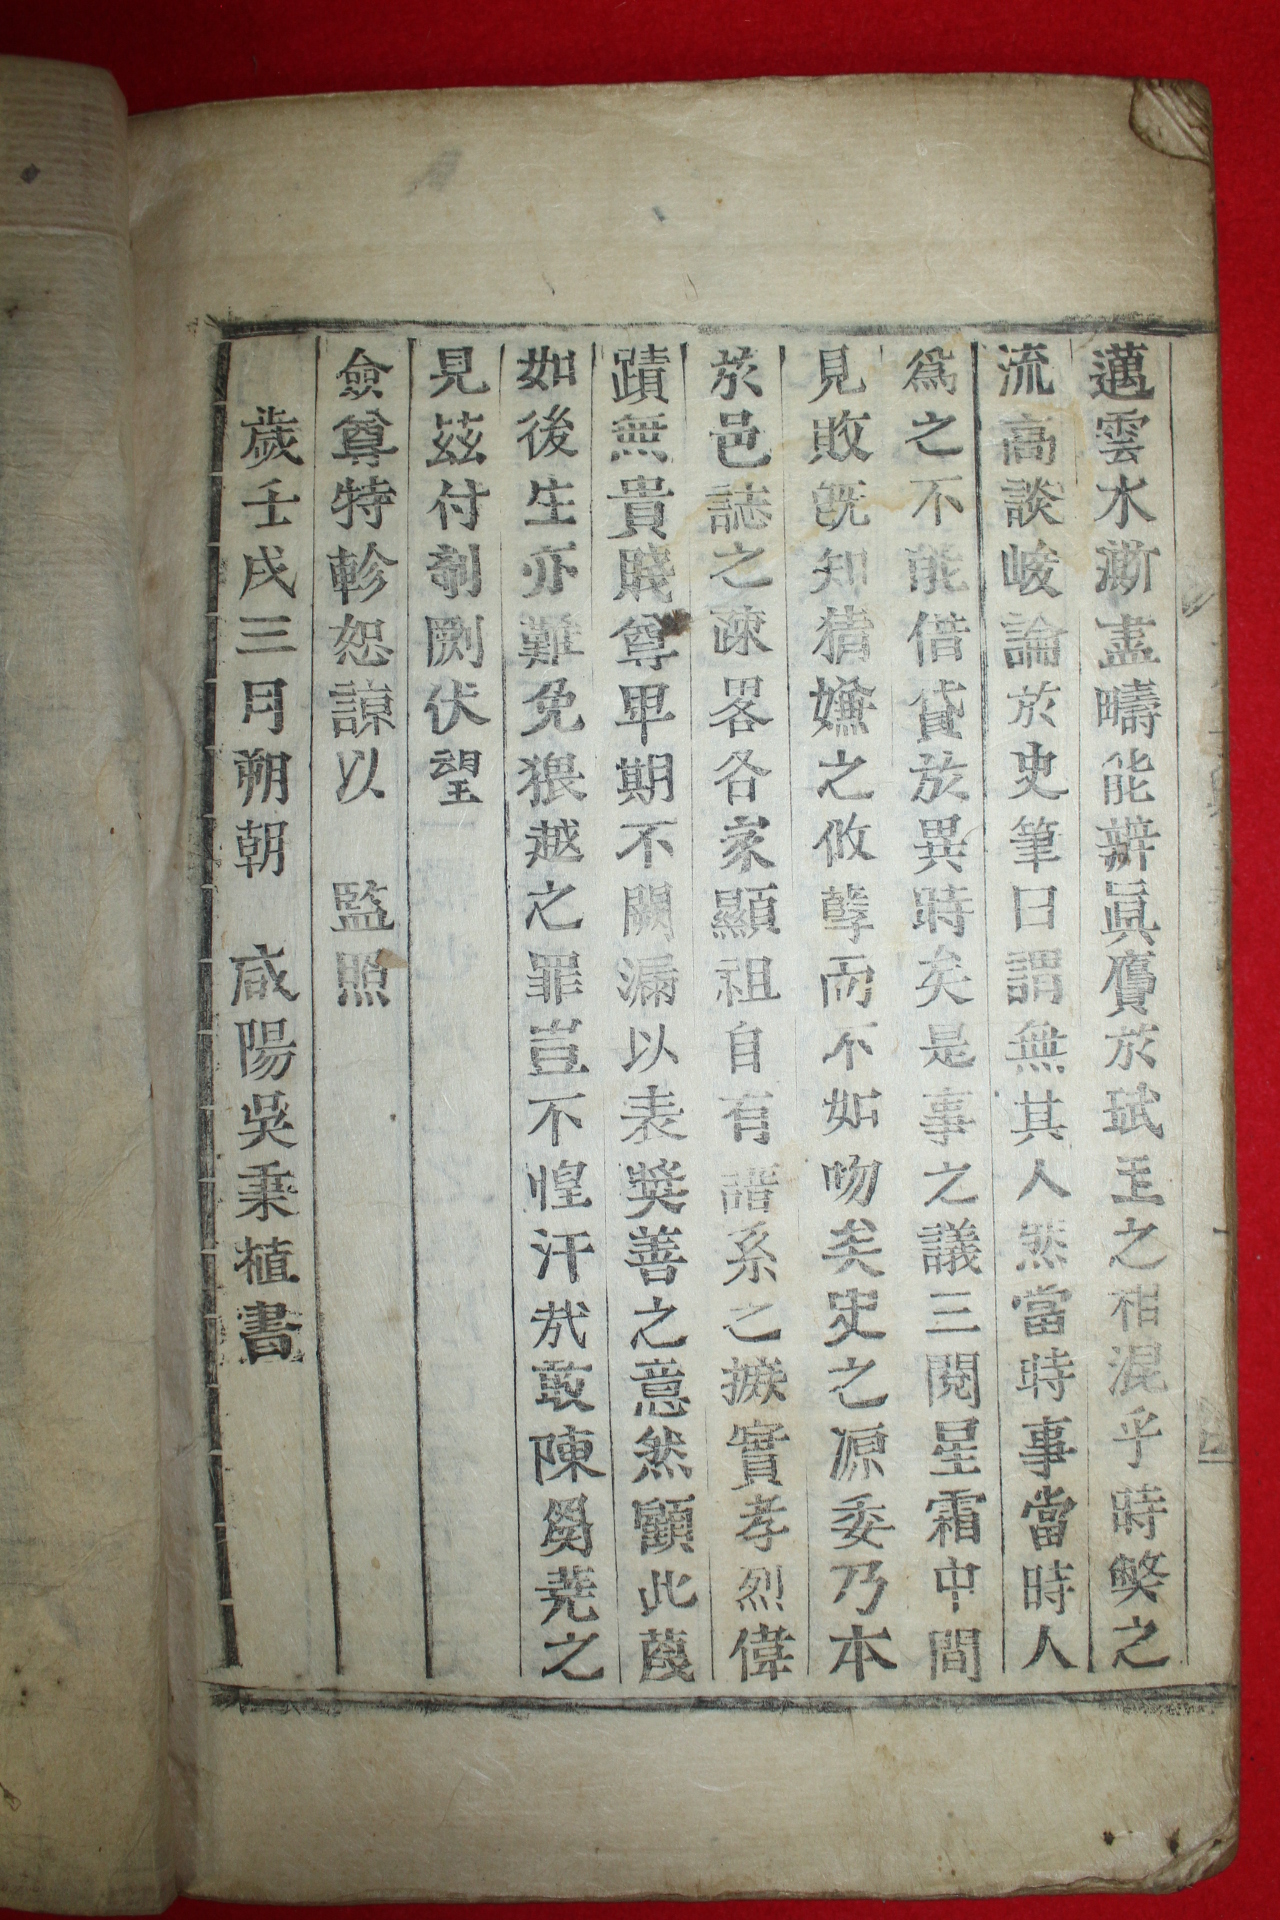 邁雲水澌盡疇能辨眞贗於珷玉之相混乎時獘之
流高談峻論於史筆曰謂無其人然當時事當時人
爲之不能借貸於異時矣是事之議三閱星霜中間
見敗旣知猜嫌之攸孽而不如吻矣史之源委乃本
於邑誌之疎畧各家顯祖自有譜系之據實孝烈偉
蹟無貴賤尊卑期不闕漏以表奬善之意然顧此蔑
如後生亦難免猥越之罪豈不惶汗哉敢陳芻蕘之
見茲付剞劂伏望
僉尊特軫恕諒以　監照
歲壬戌三月朔朝　咸陽吳秉植書